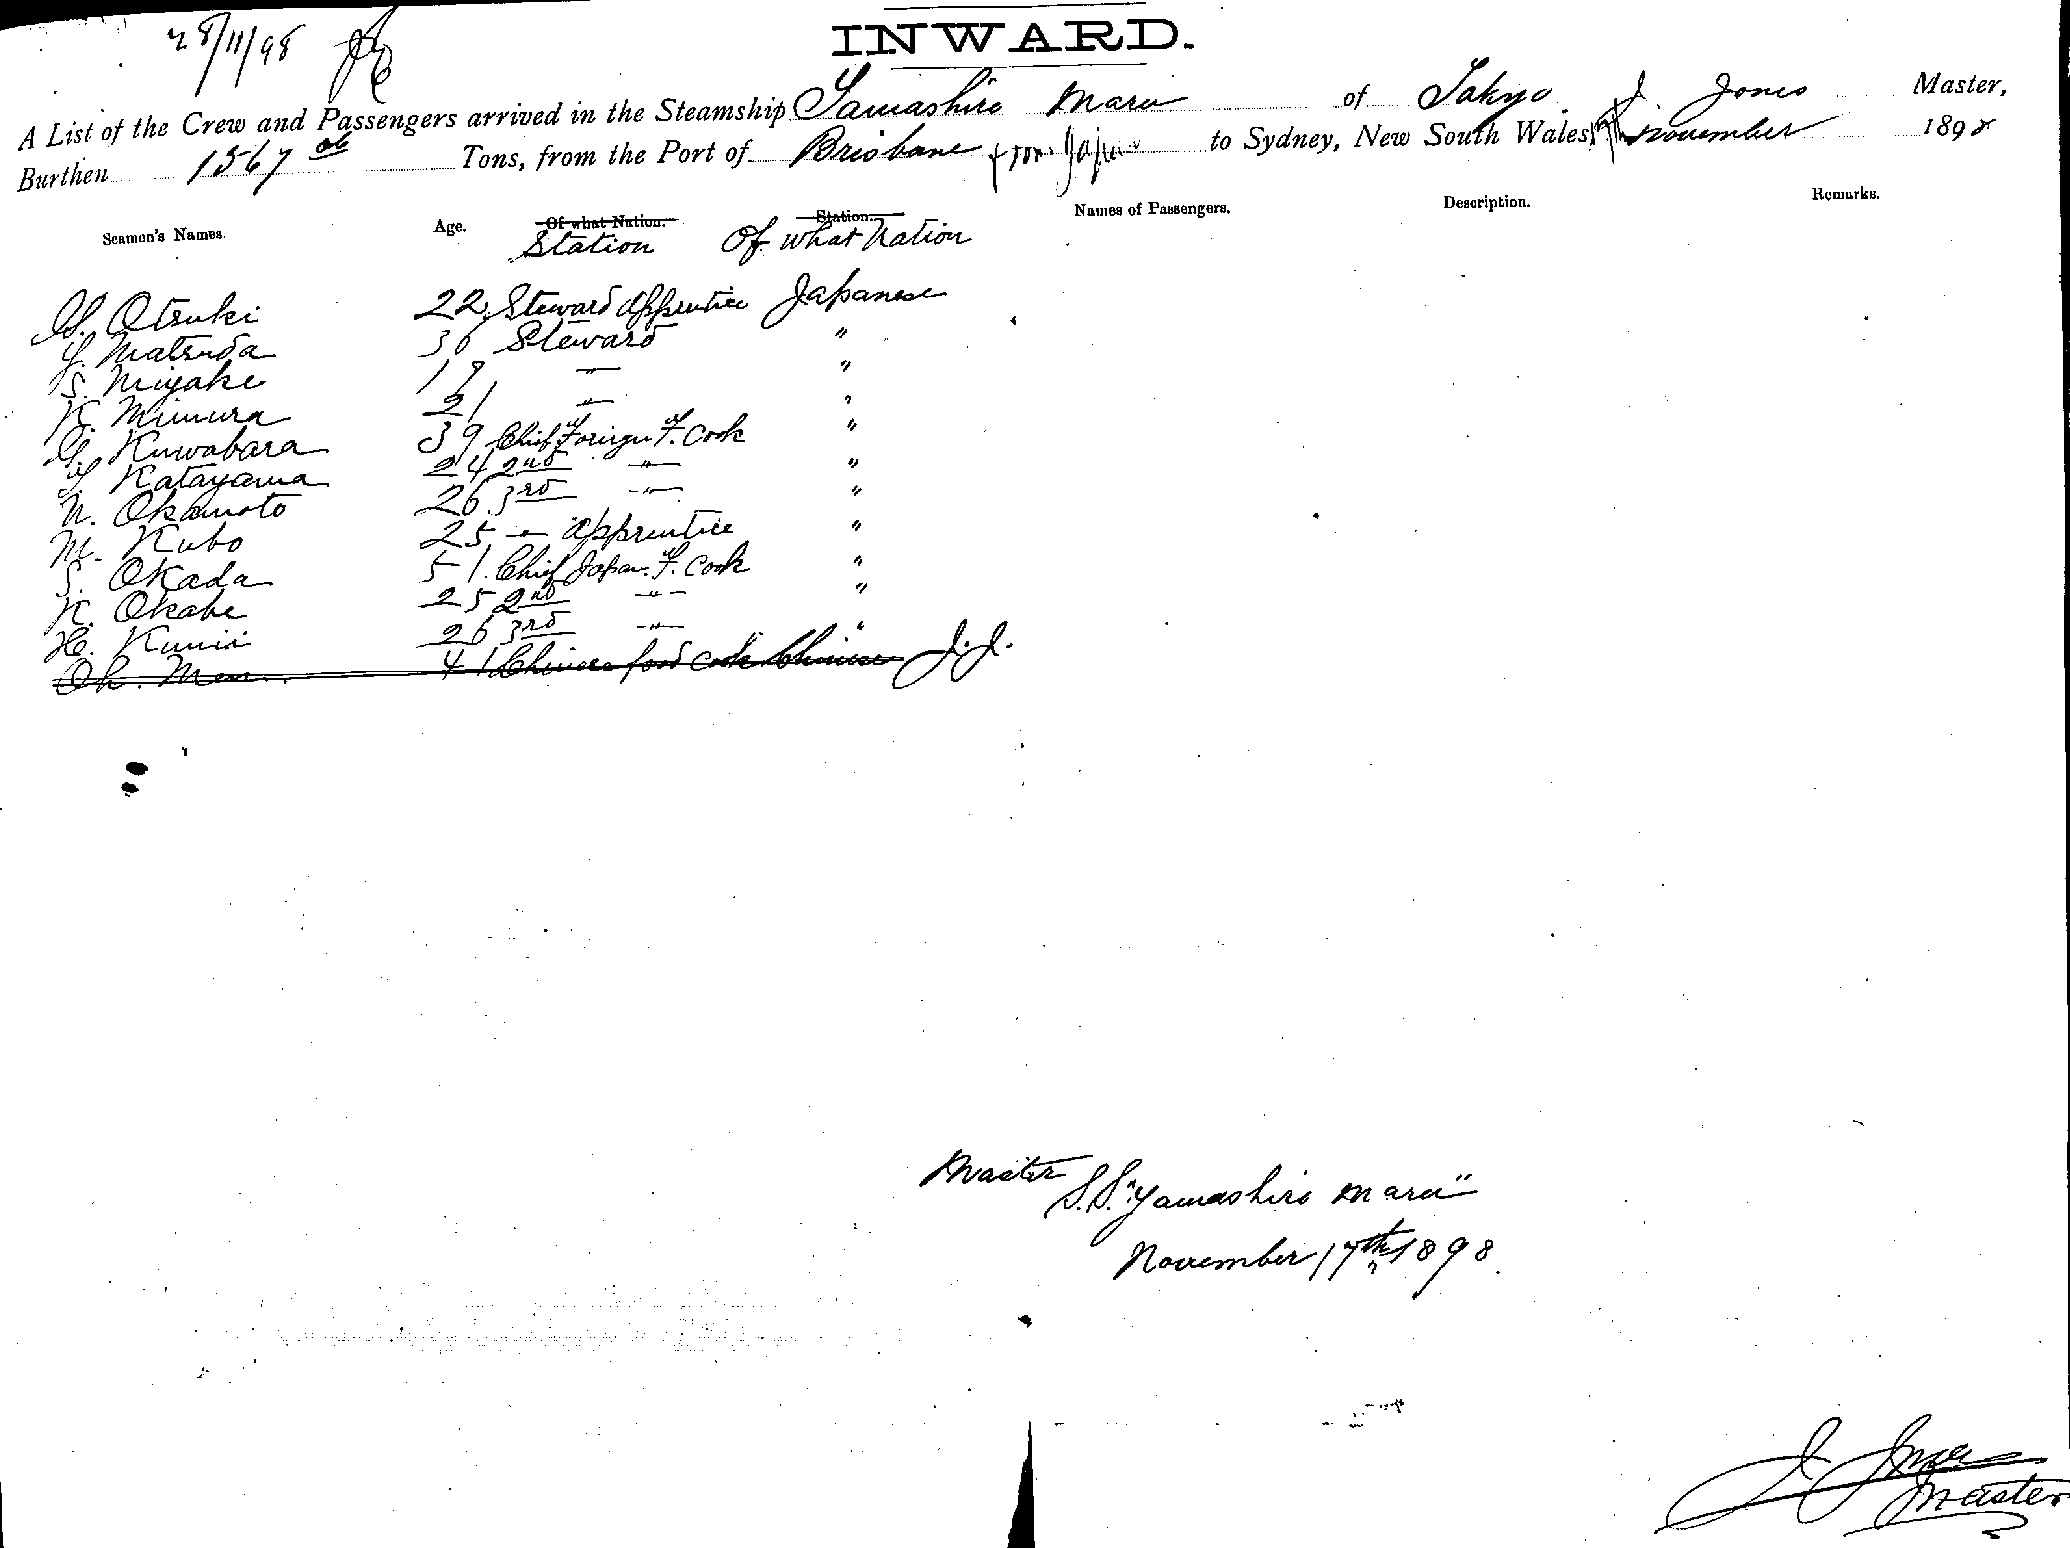 28/11/98
INWARD.
A List of the Crew and Passengers arrived in the Steamship Yamashiro Maru of Tokyo, J. Jones Master,
Burthen 1567 06 Tons, from the Port of Brisbane from Japan to Sydney, New South Wales, November 1898
Seamen's Names. Age. Of what Nation. Station. Names of Passengers. Description. Remarks.
Station Of what Nation
Otsuki 22 Steward apprentice Japanese
Y. Matsuda 36 Steward "
S. Miyake 19 " "
K. Mimura 21 " "
G. Kuwabara 39 Chief Foreign F. Cook "
Y. Katayama 24 2nd " "
N. Okamoto 26 3rd " "
M. Kubo 25 " apprentice "
S. Okada 51 Chief Japan. F. Cook "
K. Okabe 25 2nd " "
H. Kunii 26 3rd " "
Oh. Mon 41 Chinese food cook Chinese J.J.
Master
S.S. "Yamashiro Maru"
November 17th 1898.
J. Jones
Master